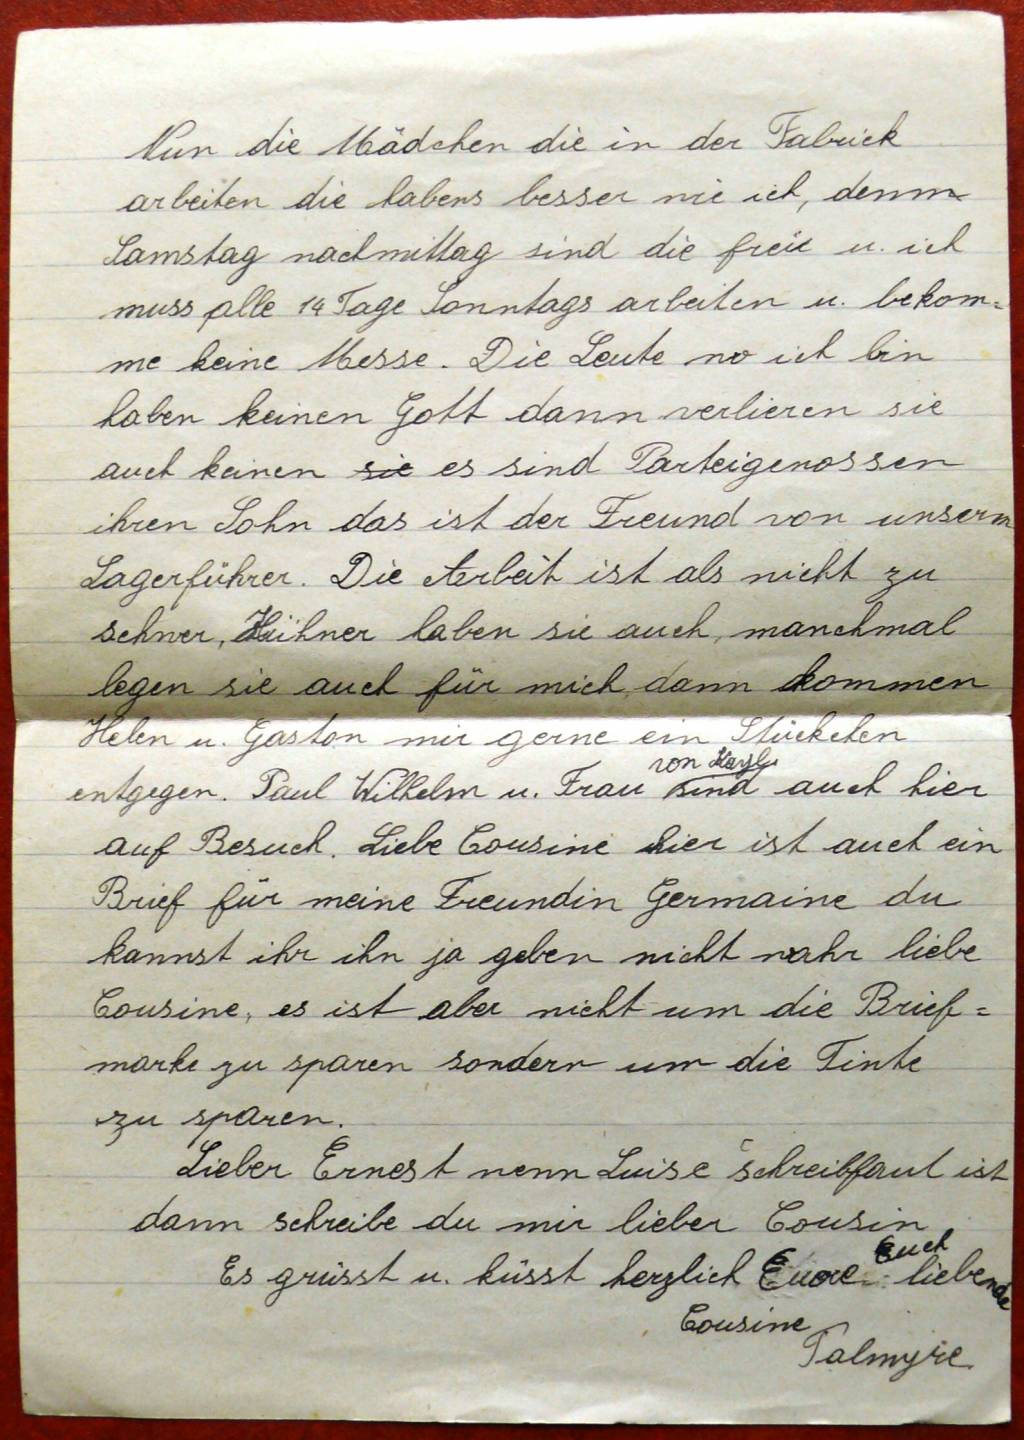 Nun die Mädchen die in der Fabrick
arbeiten die habens besser wie ich, denn
Samstag nachmittag sind die freie u. ich
muss alle 14 Tage Sonntags arbeiten u. bekom=
me keine Messe. Die Leute wo ich bin
haben keinen Gott dann verlieren sie
auch keinen sie es sind Parteigenossen
ihren Sohn das ist der Freund von unserm
Lagerführer. Die Arbeit ist als nicht zu
schwer, Hühner haben sie auch, manchmal
legen sie auch für mich dann kommen
Helen u. Gaston mir gerne ein Stückchen
von Kayl
entgegen. Paul Wilhelm u. Frau sind auch hier
auf Besuch. Liebe Cousine hier ist auch ein
Brief für meine Freundin Germaine du
kannst ihr ihn ja geben nicht wahr liebe
Cousine, es ist aber nicht um die Brief=
marke zu sparen sondern um die Tinte
zu sparen.
Lieber Ernest wenn Luise schreibfaul ist
dann schreibe du mir lieber Cousin
Euch
Es grüsst u. küsst herzlich Eure liebende
Cousine
Palmyre